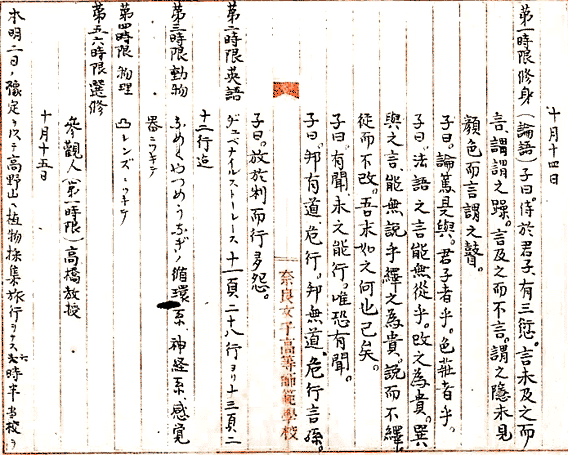 十月十四日
第一時限 修身 (論語) 子曰。侍於君子、有三愆。言未及之而
言、謂謂之躁。言及之而不言。謂之隱未見
顏色而言謂之瞽。
子曰。論篤是與。君子者乎。色莊者乎。
子曰。法語之言能無從乎。改之為貴。巽
與之言、能無説乎繹之為貴。説而不繹
従而不改。吾末如之何也已矣。
子曰。有聞未之能行。唯恐有聞。
子曰。邦有道、危行。邦無道。危行言孫。
奈良女子高等師範學校
子曰。放於利而行多怨。
第二時限 英語 ジュベナイルストーレース 十一頁二十八行ヨリ十三頁二
十二行迄
第三時限 動物 ふめくやつめうなぎノ循環系、神経系、感覚
器ニツキテ
第四時限 物理 凸レンズニツキテ
第五六時限 選修
參觀人(第一時限)高橋教授
十月十五日
本明二日ノ豫定ヲ以テ高野山ヘ植物採集旅行ヲナス 時半当校ヲ